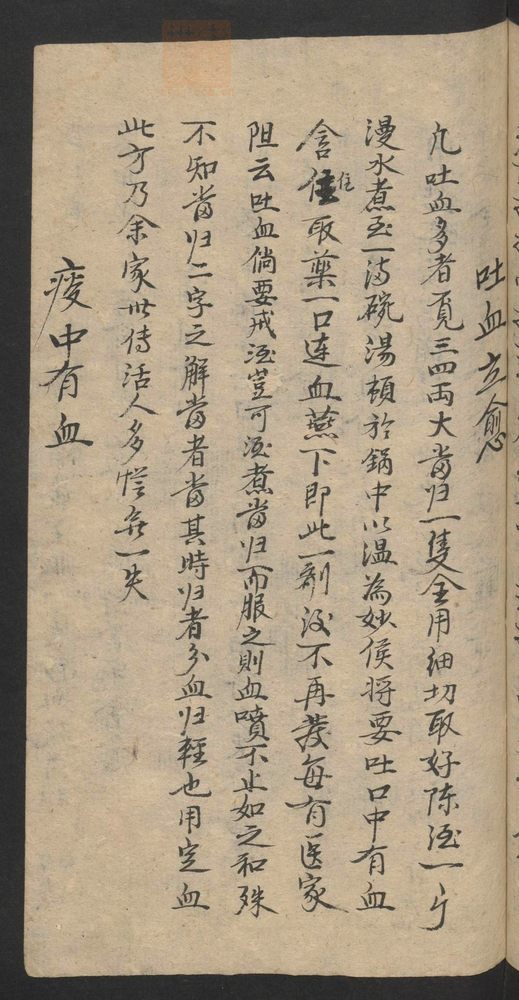 吐血立愈
凡吐血多者覓三四両大當归一隻全用细切取好陈酒一斤
漫水煮至一满碗湯頓於鍋中以温為妙候将要吐口中有血
含住住取藥一口连血燕下即此一剤後不再发每有医家
阻云吐血倘要戒酒豈可酒煮當归而服之則血噴不止如之和殊
不知當归二字之解當者當其時归者分血归輕也用定血
此方乃余家世传活人多  無一失
痰中有血